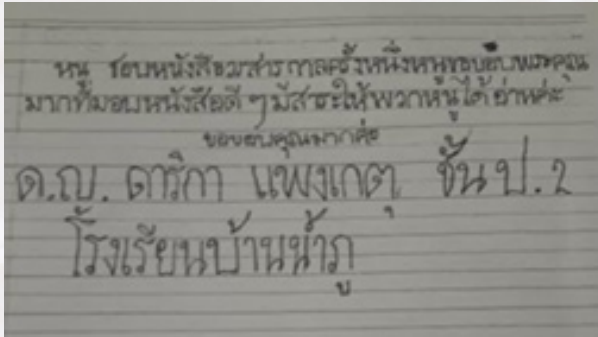 หนู ชอบหนังสือวารสารกาลครั้งหนึ่งหนูขอขอบพระคุณ
มากที่มอบหนังสือดี ๆ มีสาระให้พวกหนูได้อ่านค่ะ
ขอขอบคุณมากค่ะ
ด.ญ. ดาริกา แพงเกตุ ชั้น ป.2
โรงเรียนบ้านน้ำภู